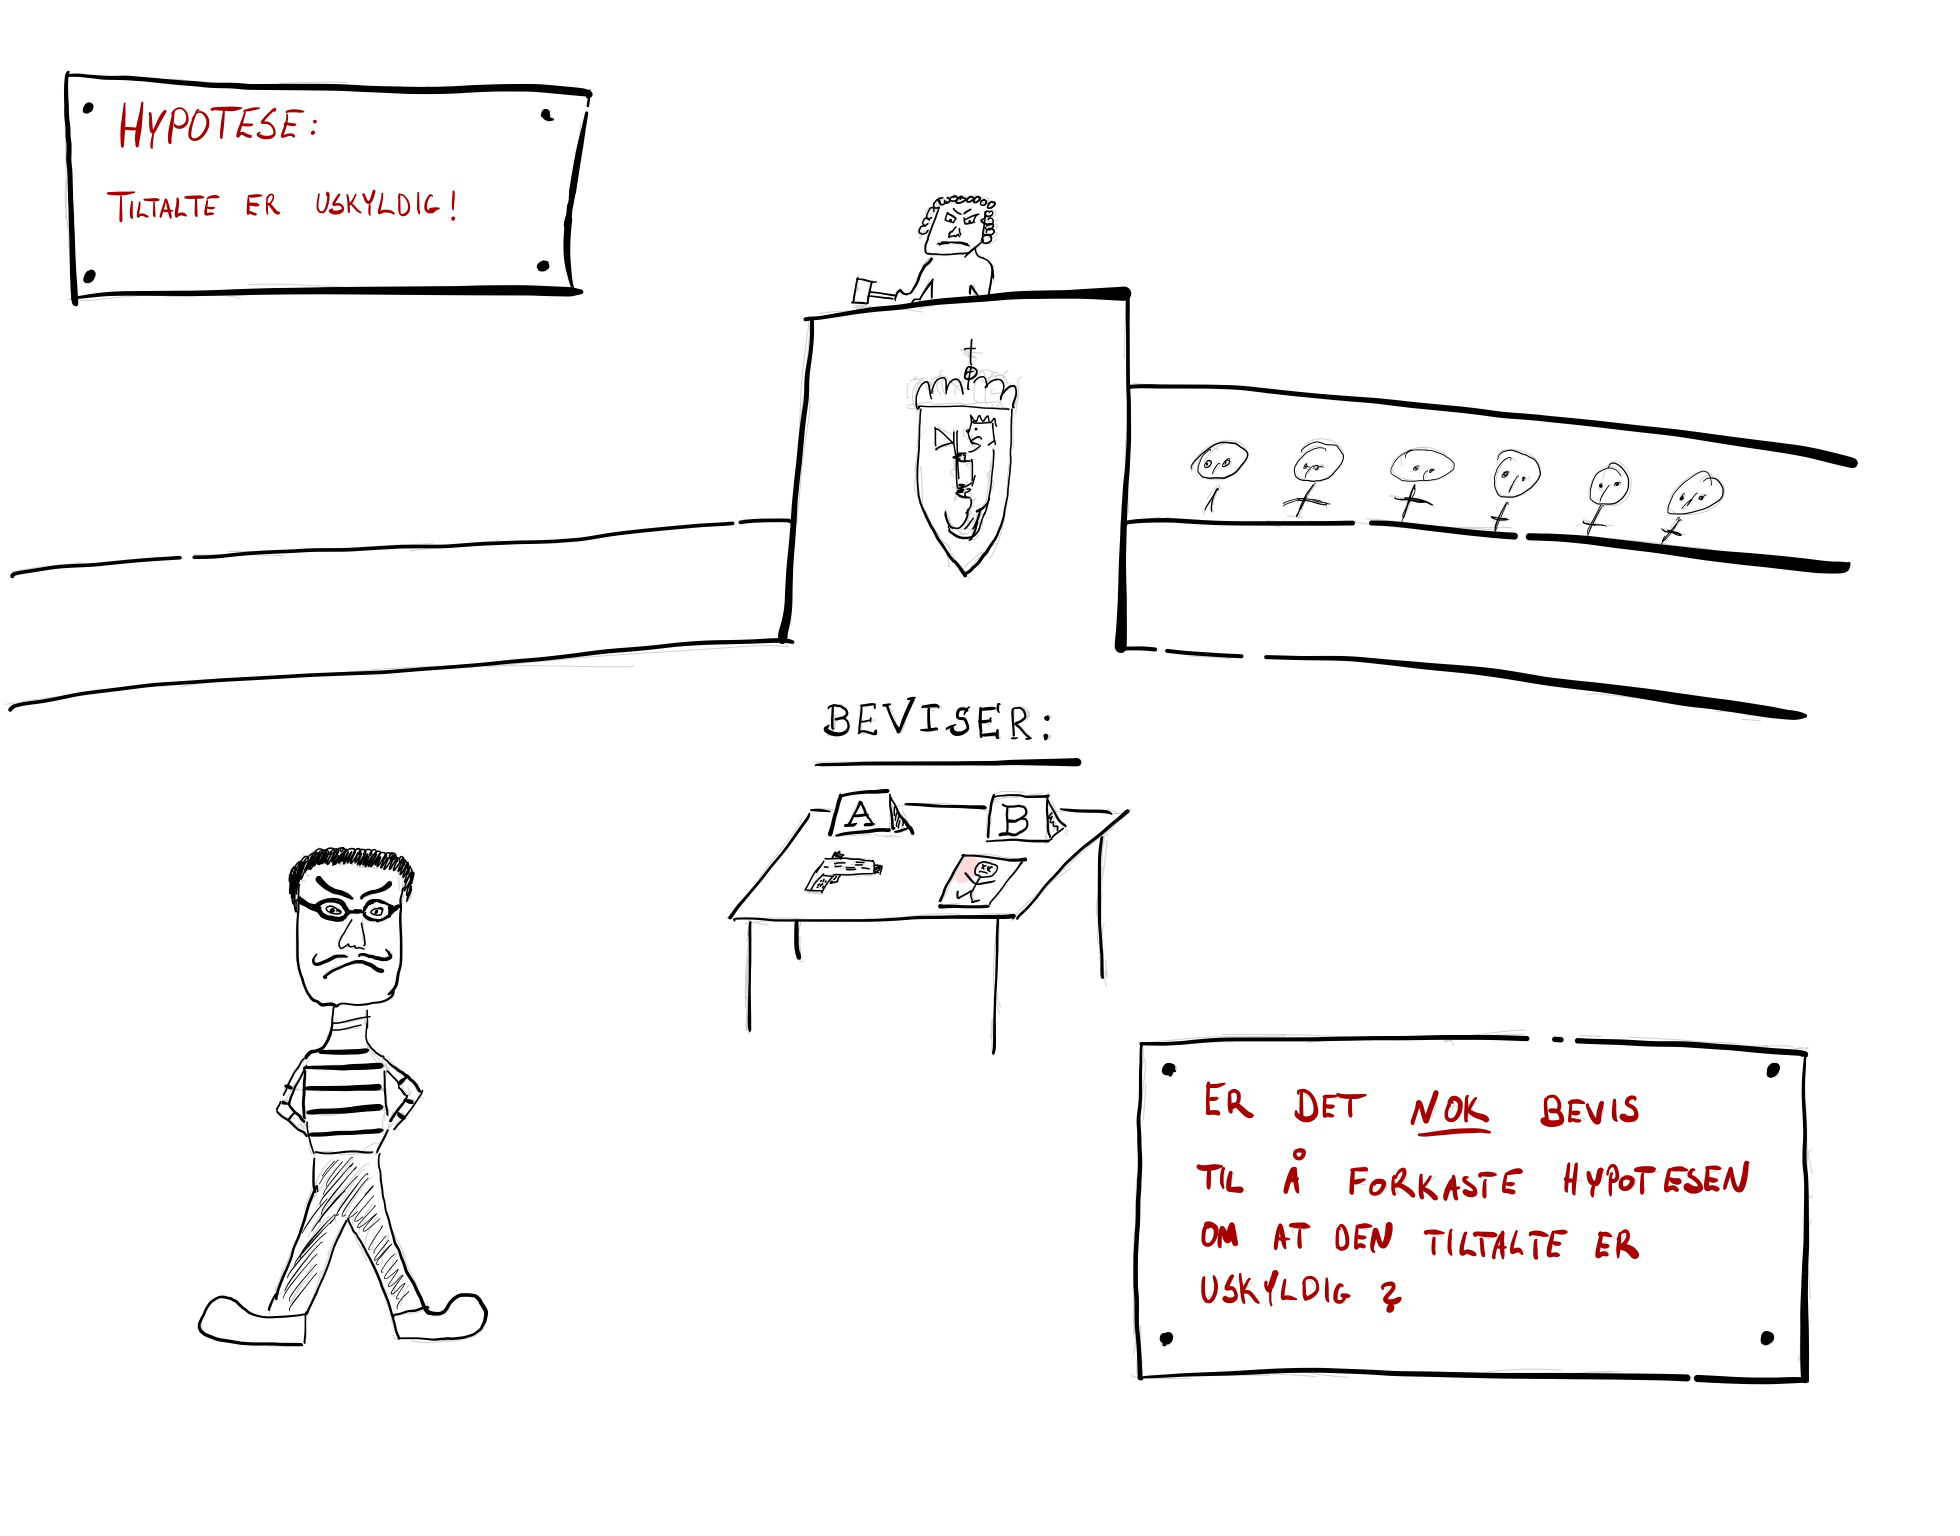 HYPOTESE:
TILTALTE ER USKYLDIG!
BEVISER:
A
B
ER DET NOK BEVIS
TIL Å FORKASTE HYPOTESEN
OM AT DEN TILTALTE ER
USKYLDIG ?